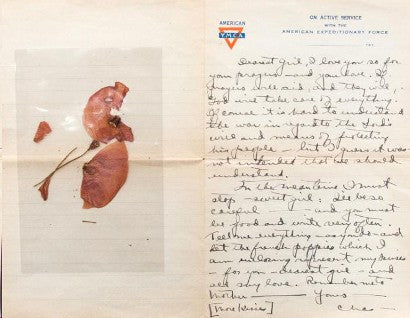 AMERICAN
YMCA
ON ACTIVE SERVICE
WITH THE
AMERICAN EXPEDITIONARY FORCE
191
Dearest Girl, I love you so for
your prayers and your love. If
prayers will aid, and they will,
God will take care of everything.
Of course it is hard to understand
the war in regard to the Lord's
will and means of protecting
his people — but I guess it was
not intended that we should
understand.
In the meantime I must
stop — sweet girl. I'll be so
careful — and you must
be good and write very often.
Tell me everything — as you do — and
let the french poppies which I
am enclosing represent my kisses
— for you — dearest girl — and
all my love. Remember me to
Mother — Yours —
[More Kisses] Chas —